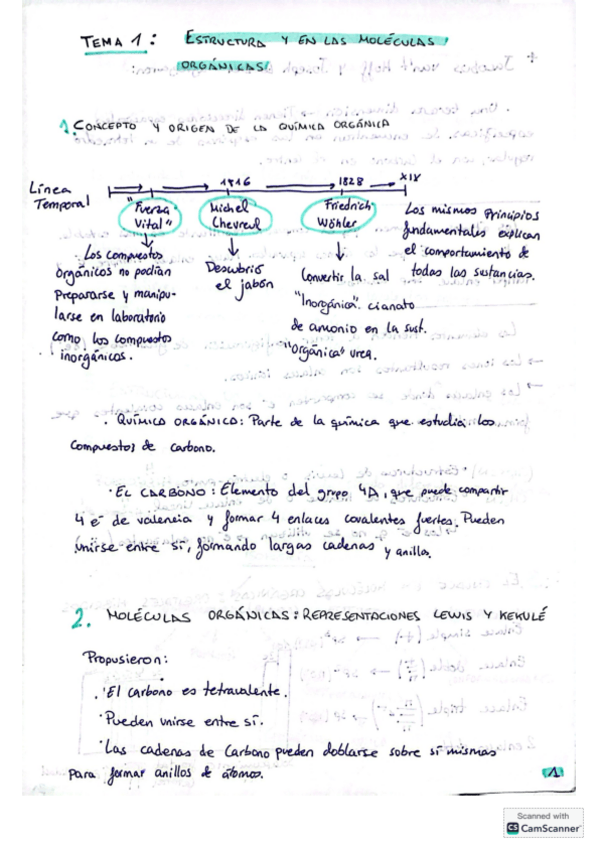 TEMA 1: ESTRUCTURA Y EN LAS MOLÉCULAS
ORGÁNICAS
1. CONCEPTO Y ORIGEN DE LA QUÍMICA ORGÁNICA
Línea
Temporal
1816
1828
XIX
"Fuerza
Vital"
Los compuestos
orgánicos no podían
Prepararse y manipu-
larse en laboratorio
como los compuestos
inorgánicos.
Michel
Chevreul
Descubrió
el jabón
Friedrich
Wöhler
Convertir la sal
"Inorgánica" cianato
de amonio en la sust.
"Orgánica" urea.
Los mismos principios
fundamentales explican
el comportamiento de
todas las sustancias.
. QUÍMICA ORGÁNICA: Parte de la química que estudia los
compuestos de carbono.
· EL CARBONO: Elemento del grupo 4A, que puede compartir
4 e⁻ de valencia y formar 4 enlaces covalentes fuertes. Pueden
unirse entre sí, formando largas cadenas y anillos.
2. MOLÉCULAS ORGÁNICAS: REPRESENTACIONES LEWIS Y KEKULÉ
Propusieron:
· El carbono es tetravalente.
· Pueden unirse entre sí.
· Las cadenas de carbono pueden doblarse sobre sí mismas
para formar anillos de átomos.
1
Scanned with
CS CamScanner